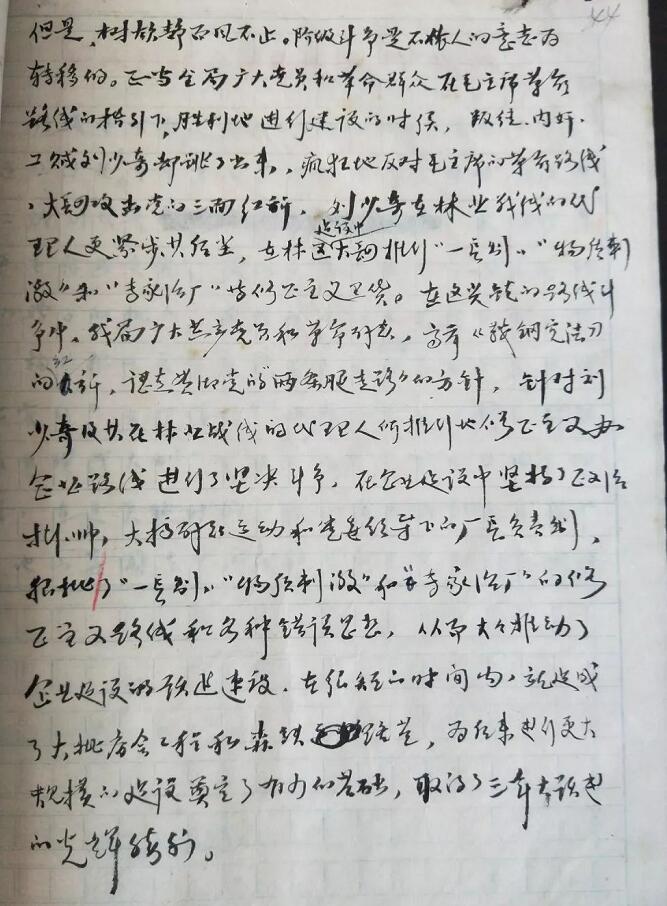 44
但是，树欲静而风不止。阶级斗争是不依人的意志为
转移的。正当全局广大党员和革命群众在毛主席革命
路线的指引下，胜利地进行建设的时候，叛徒、内奸、
工贼刘少奇却跳了出来，疯狂地反对毛主席的革命路线
，大肆攻击党的三面红旗，刘少奇在林业战线的代
理人更紧步其后尘，在林建设中大肆推行“一长制”、“物质刺
激”和“专家治厂”等修正主义黑货。在这尖锐的路线斗
争中，我局广大共产党员和革命群众，高举《鞍钢宪法》
的红旗，认真贯彻党的“两条腿走路”的方针，针对刘
少奇及其在林业战线的代理人所推行的修正主义办
企业路线进行了坚决斗争，在企业建设中坚持了政治
挂帅，大搞群众运动和党委领导下的厂长负责制，
狠批了“一长制”、“物质刺激”和“专家治厂”的修
正主义路线和各种错误思想，从而大大推动了
企业建设的跃进速度。在很短的时间内，就造成
了大批房舍工程和森铁路基，为后来进行更大
规模的建设奠定了有力的基础，取得了三年大跃进
的光辉胜利。